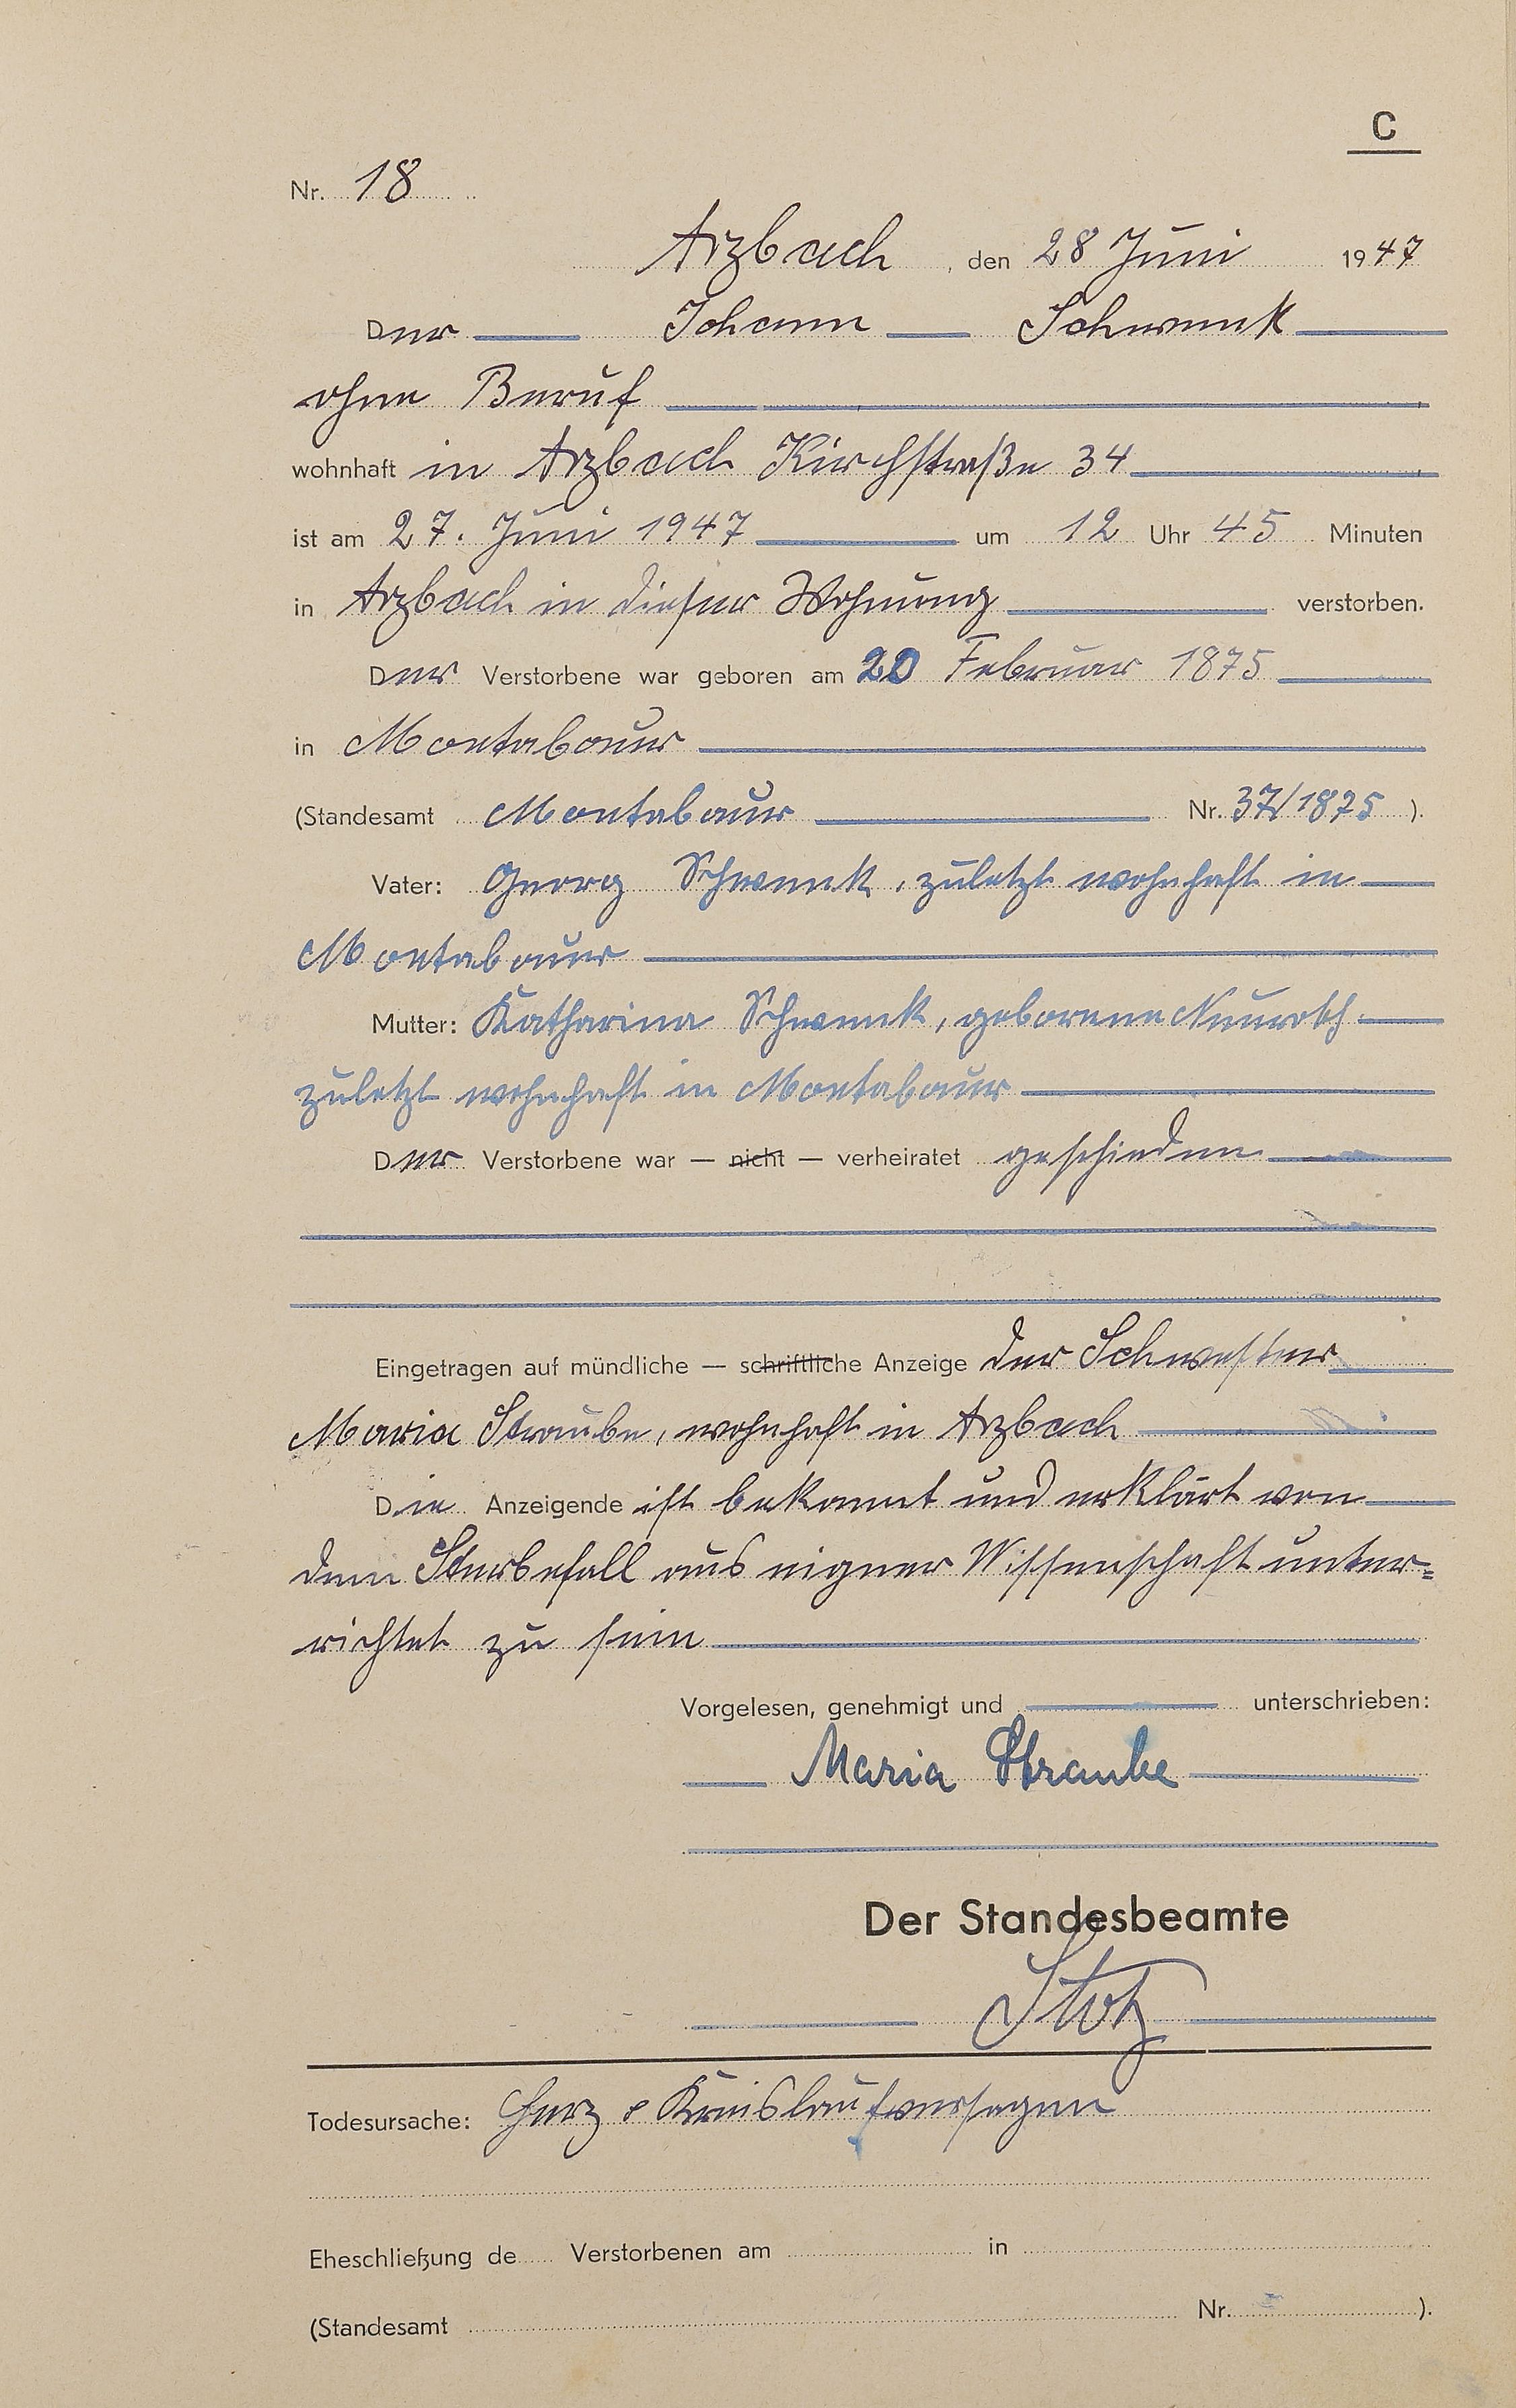 C
Nr. 18
Arzbach, den 28 Juni 1947
Der Johann Schwenk
ohne Beruf
wohnhaft in Arzbach Kirchstraße 34
ist am 27. Juni 1947 um 12 Uhr 45 Minuten
in Arzbach in dieser Wohnung verstorben.
Der Verstorbene war geboren am 20 Februar 1875
in Montabaur
(Standesamt Montabaur Nr. 37/1875 ).
Vater: Georg Schwenk, zuletzt wohnhaft in
Montabaur
Mutter: Katharina Schwenk, geborene
zuletzt wohnhaft in Montabaur
Der Verstorbene war — nicht — verheiratet geschieden
Eingetragen auf mündliche — schriftliche Anzeige der Schwester
Maria Straube, wohnhaft in Arzbach
Die Anzeigende ist bekannt und erklärt von
dem Sterbefall aus eigner Wissenschaft unter=
richtet zu sein
Vorgelesen, genehmigt und unterschrieben:
Maria Straube
Der Standesbeamte
Stotz
Todesursache: Herz & Kreislaufversagen
Eheschließung de Verstorbenen am in
(Standesamt Nr. ).